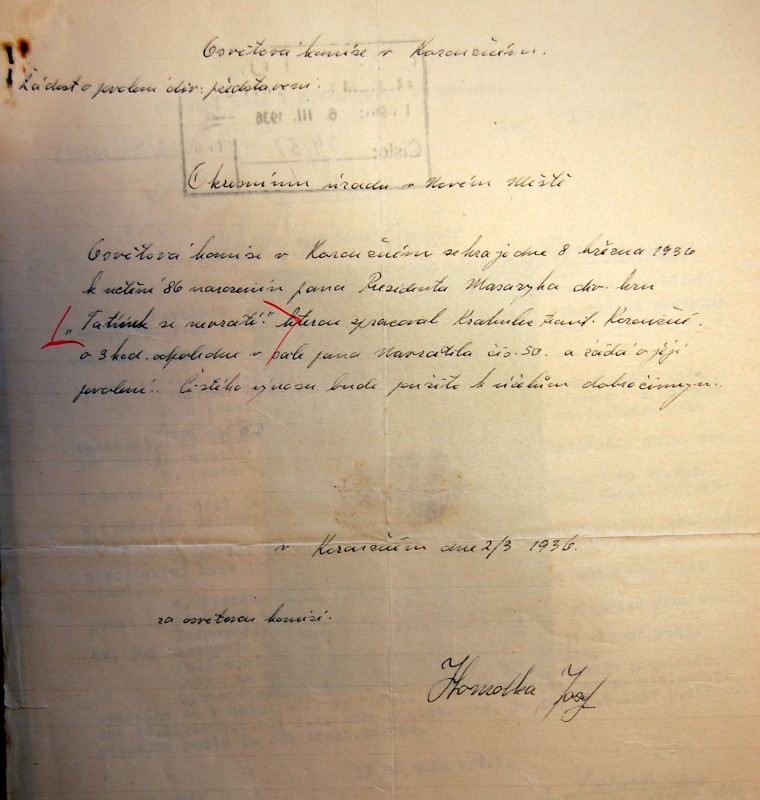 Osvětová komise v Korouhvém.
Žádost o povolení div. představení.
6. III. 1936
Číslo:
Okresnímu úřadu v Novém Městě
Osvětová komise v sehraje dne 8 března 1936
k uctění 86 narozenin pana Presidenta Masaryka div. hru
"Tatínek se nevrátí." kterou zpracoval
o 3 hod. odpoledne v sále pana Navrátila čís. 50. a žádá o její
povolení. Čistého výnosu bude použito k účelům dobročinným.
v dne 2/3 1936.
za osvětovou komisi.
Homolka Josef